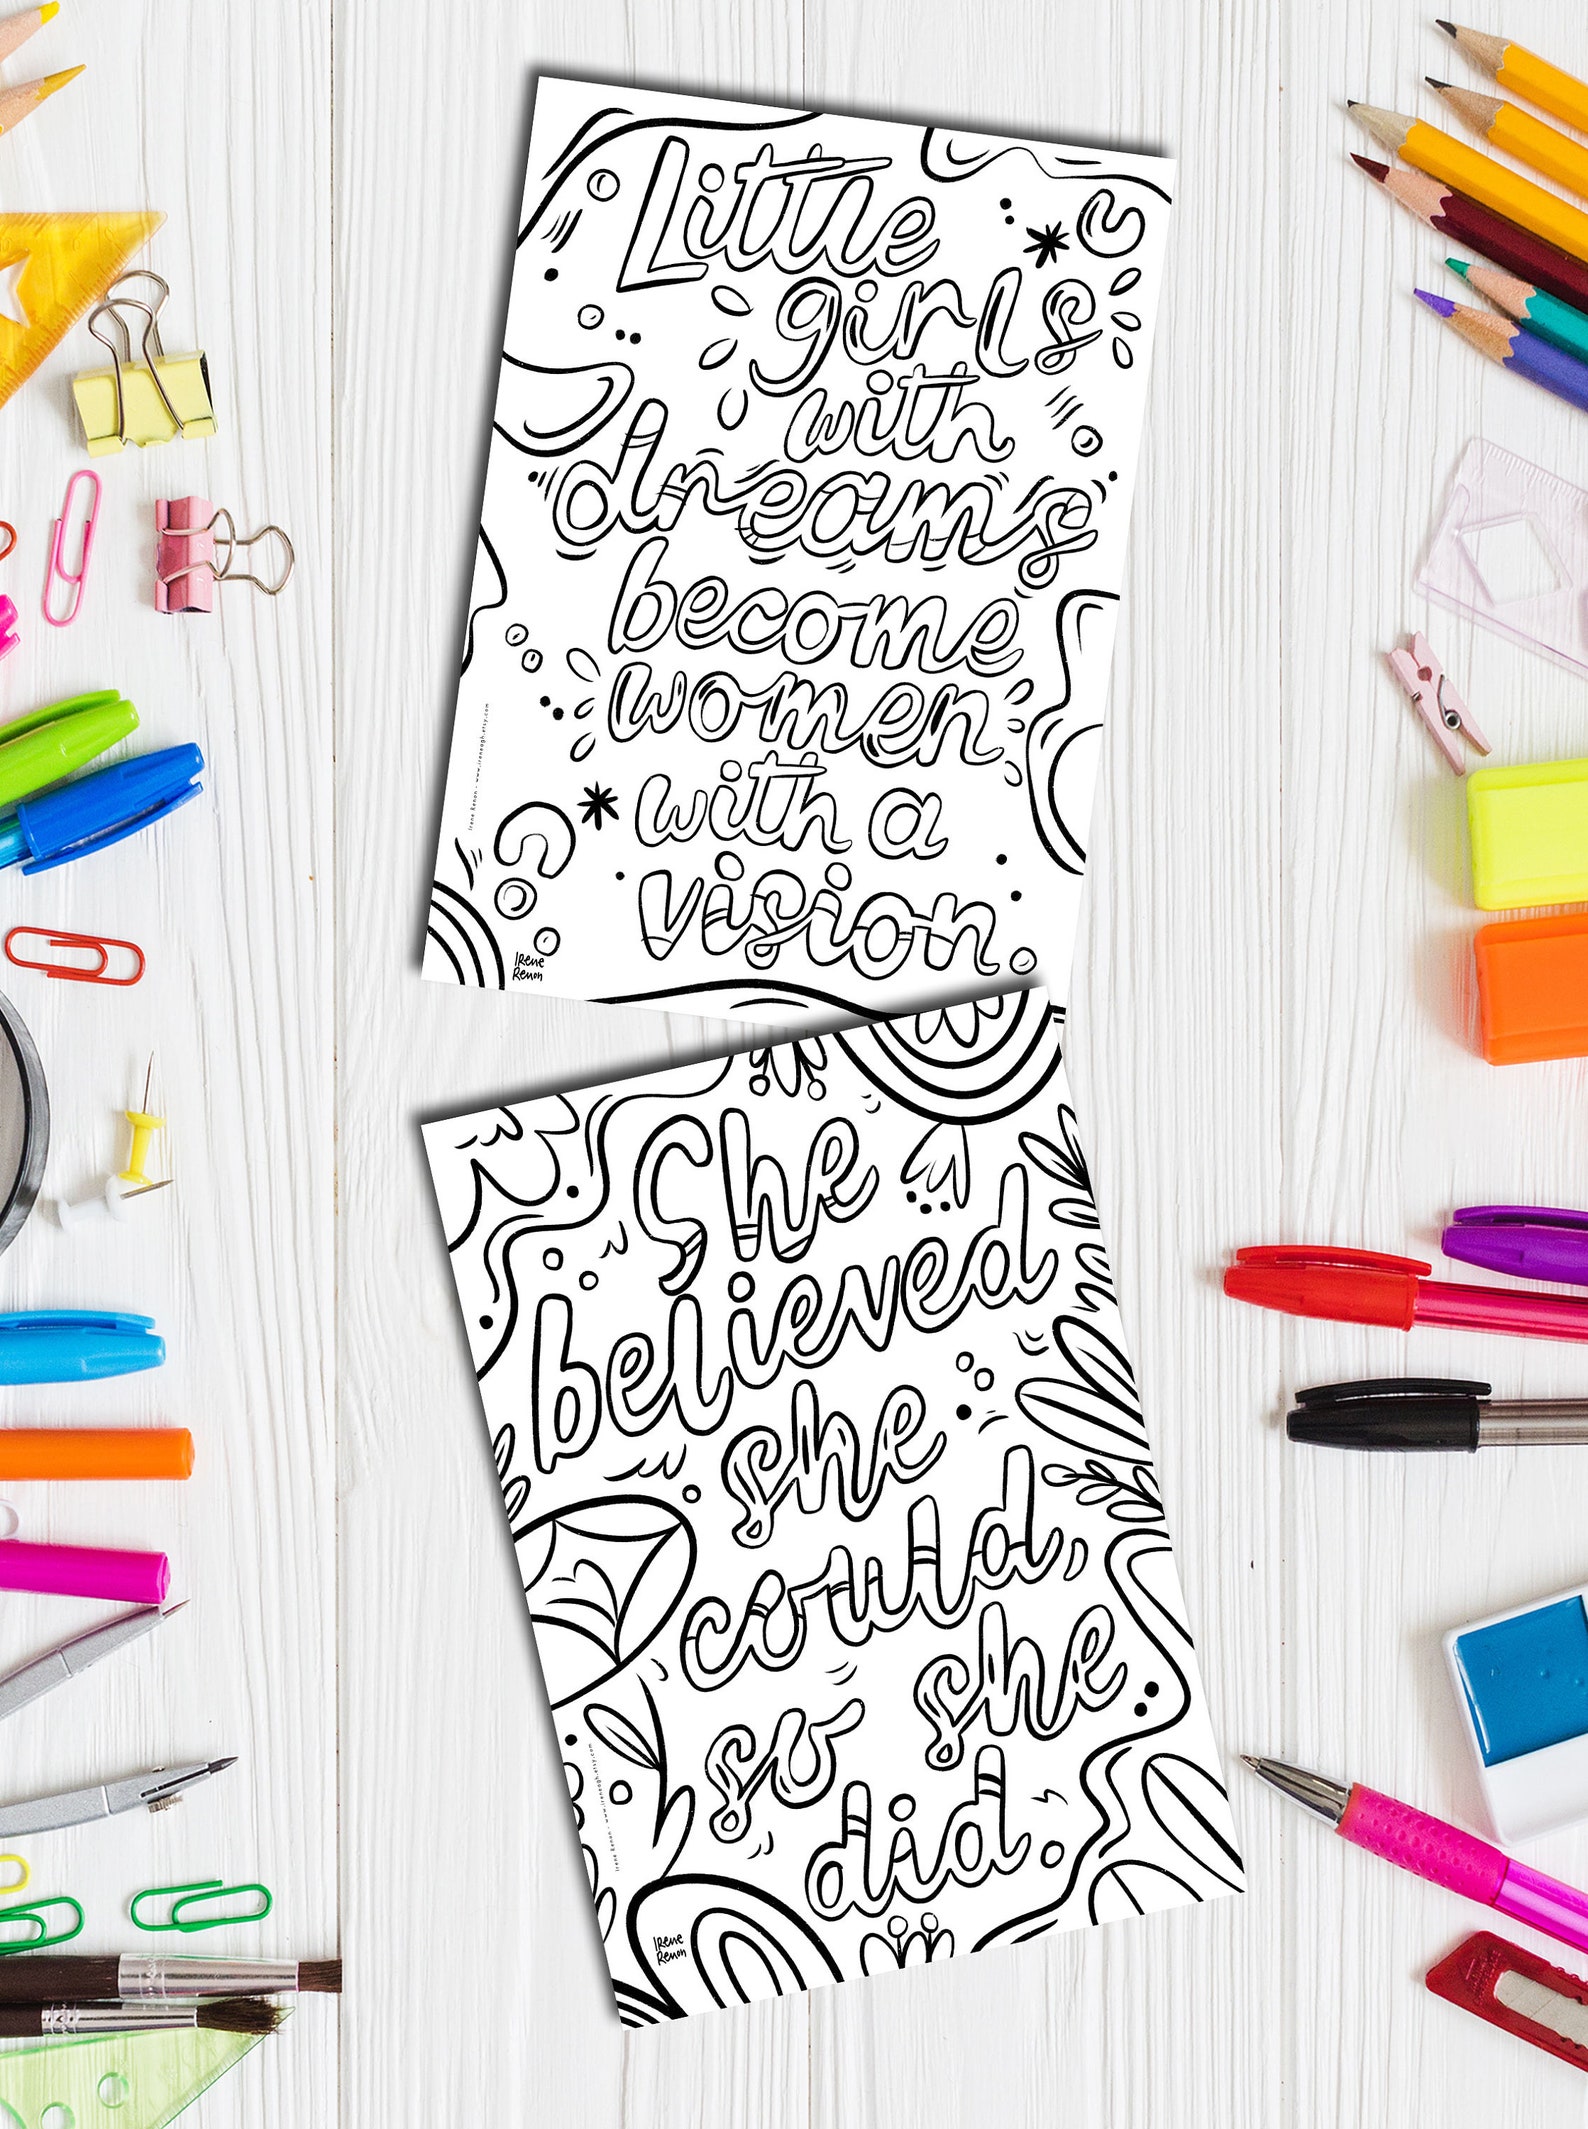 Little
girls
with
dreams
become
women
with a
vision.
Irene Renon - www.ireneagh.etsy.com
Irene
Renon
She
believed
she
could,
so she
did.
Irene Renon - www.ireneagh.etsy.com
Irene
Renon